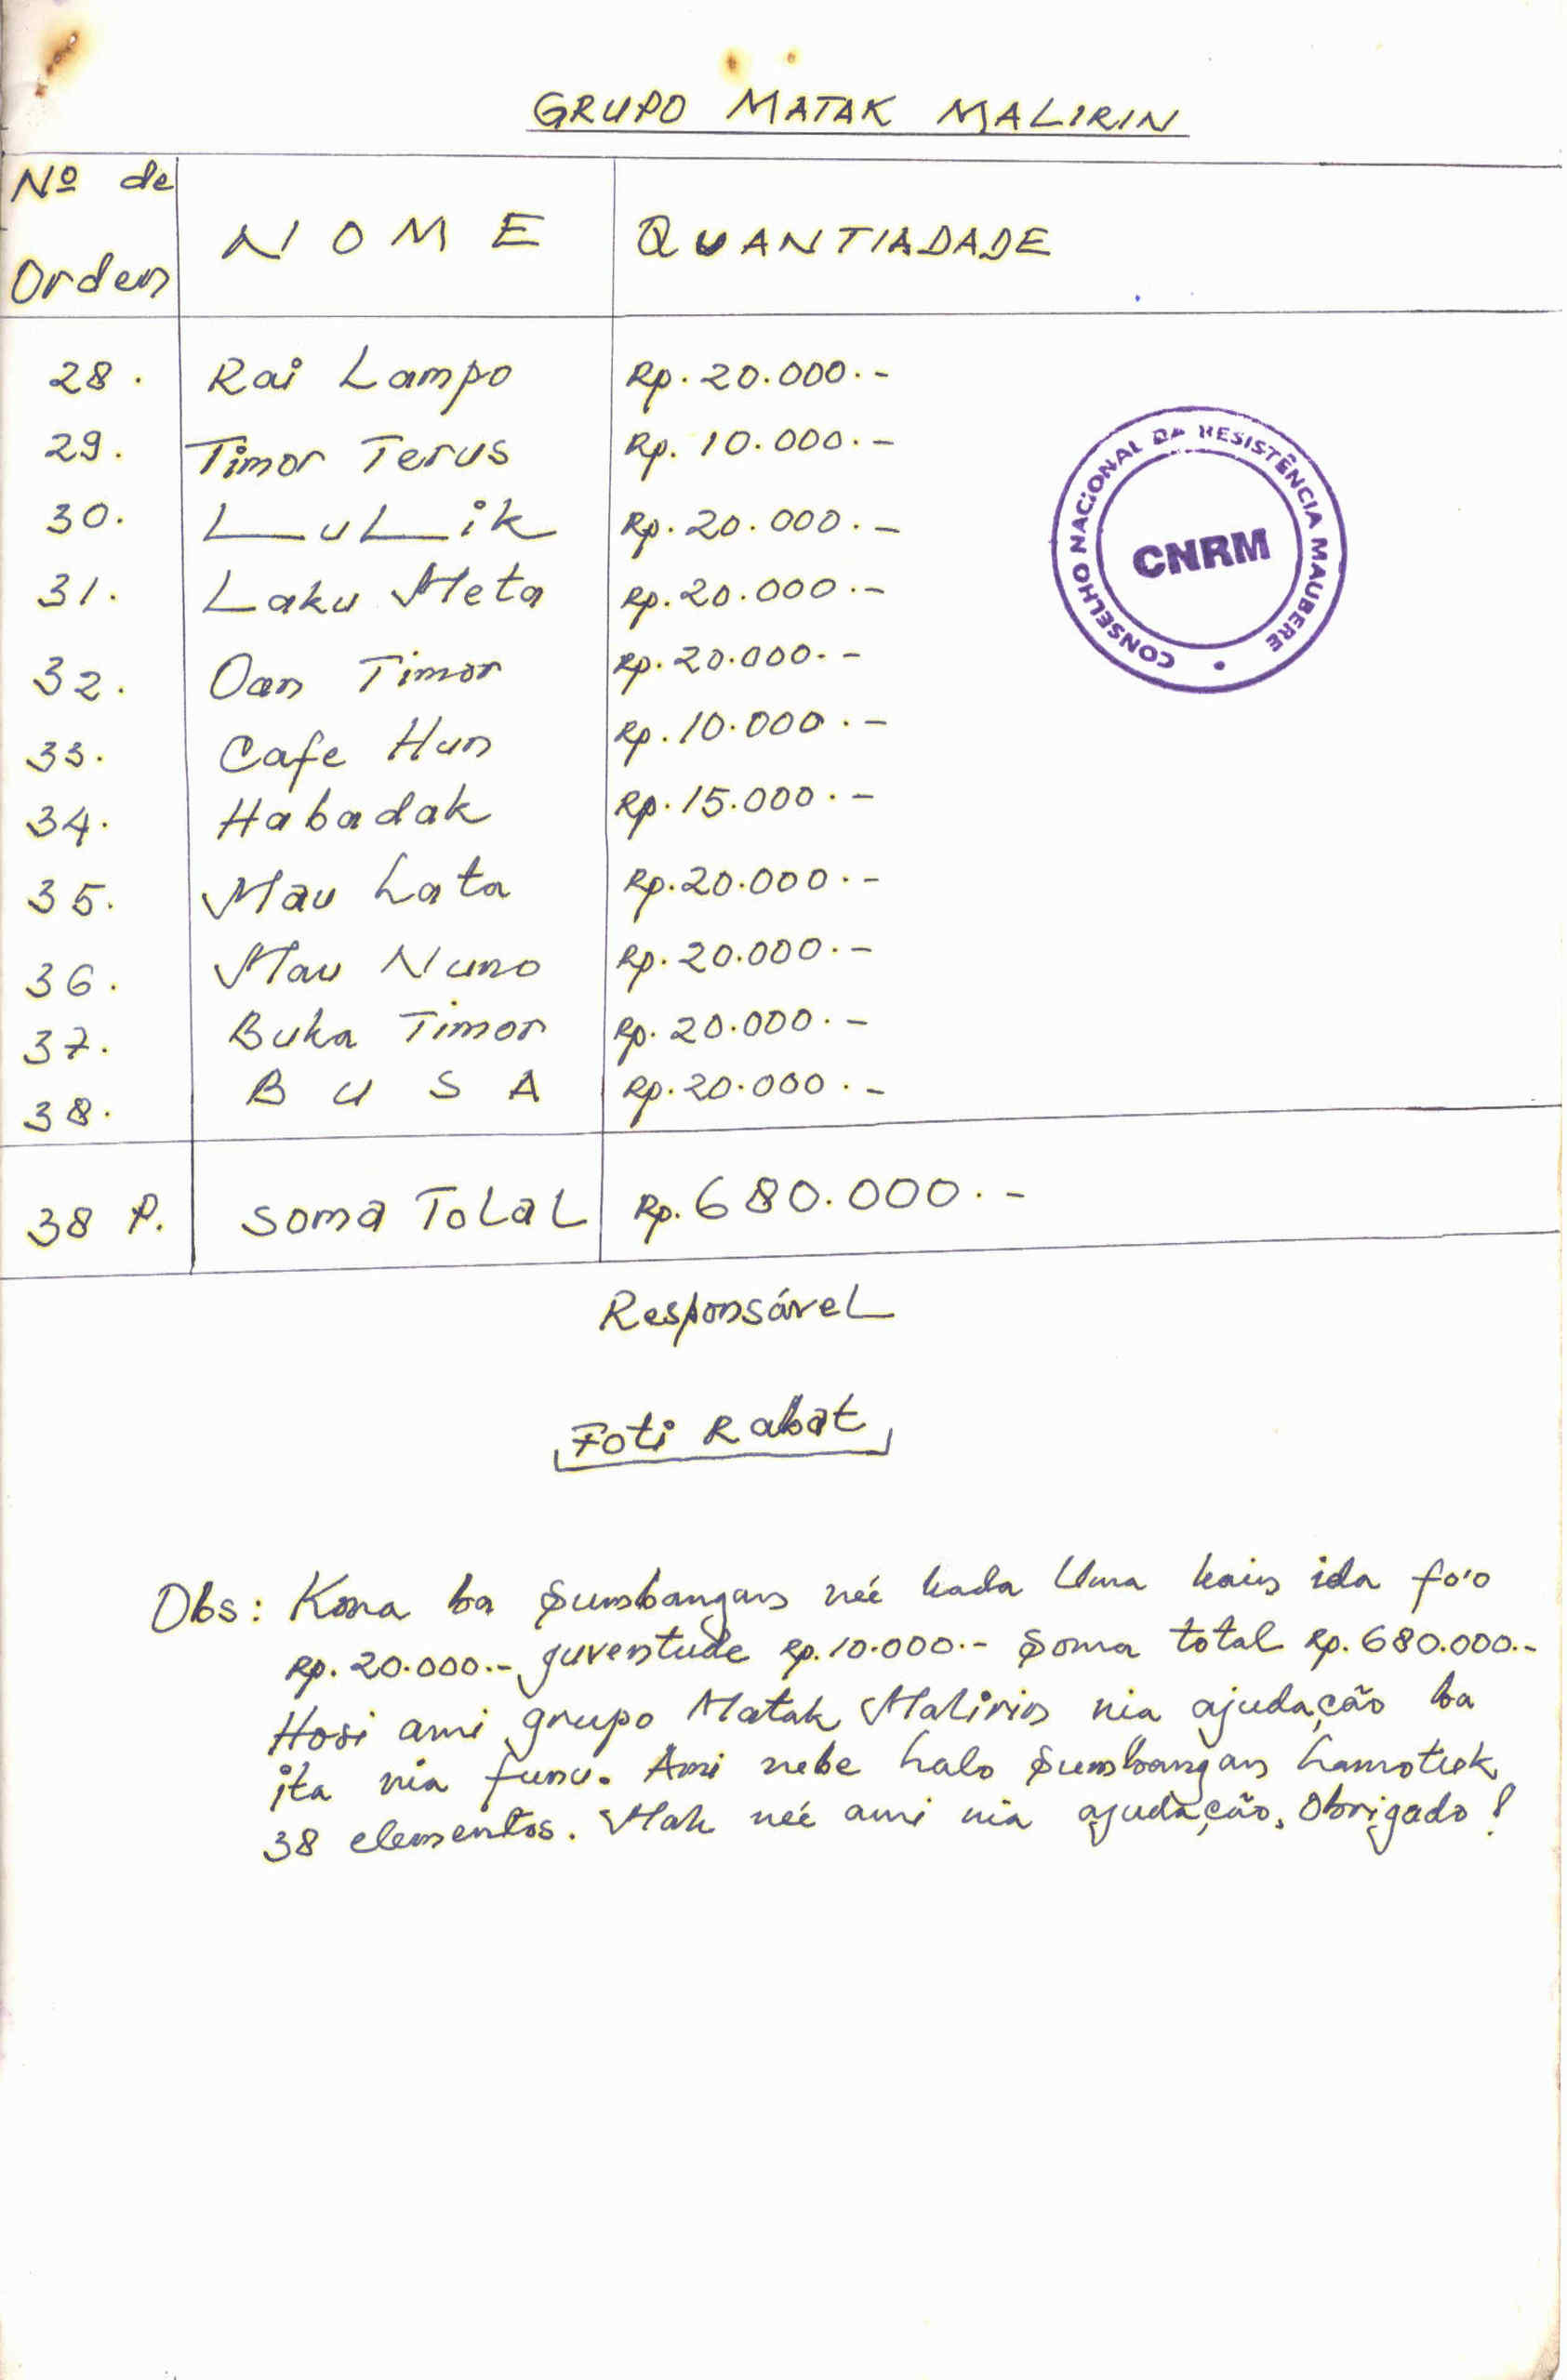 GRUPO MATAK MALIRIN
Nº de Orden NOME QUANTIADADE
28. Rai Lampo Rp. 20.000.-
29. Timor Terus Rp. 10.000.-
30. LuLik Rp. 20.000.-
31. Laku Meta Rp. 20.000.-
32. Oan Timor Rp. 20.000.-
33. Cafe Hun Rp. 10.000.-
34. Habadak Rp. 15.000.-
35. Mau Lata Rp. 20.000.-
36. Mau Nuno Rp. 20.000.-
37. Buka Timor Rp. 20.000.-
38. BUSA Rp. 20.000.-
38 P. Soma ToLaL Rp. 680.000.-
CONSELHO NACIONAL DA RESISTÊNCIA MAUBERE
CNRM
ResponsáveL
Foti Rabat
Obs: Kona ba Sumbangan neé kada Uma kain ida fo'o
Rp. 20.000.- juventude Rp. 10.000.- Soma total Rp. 680.000.-
Hosi ami grupo Matak Malirin nia ajudação ba
ita nia funu. Ami nebe halo Sumbangan hamotuk
38 elementos. Mak neé ami nia ajudação. Obrigado!